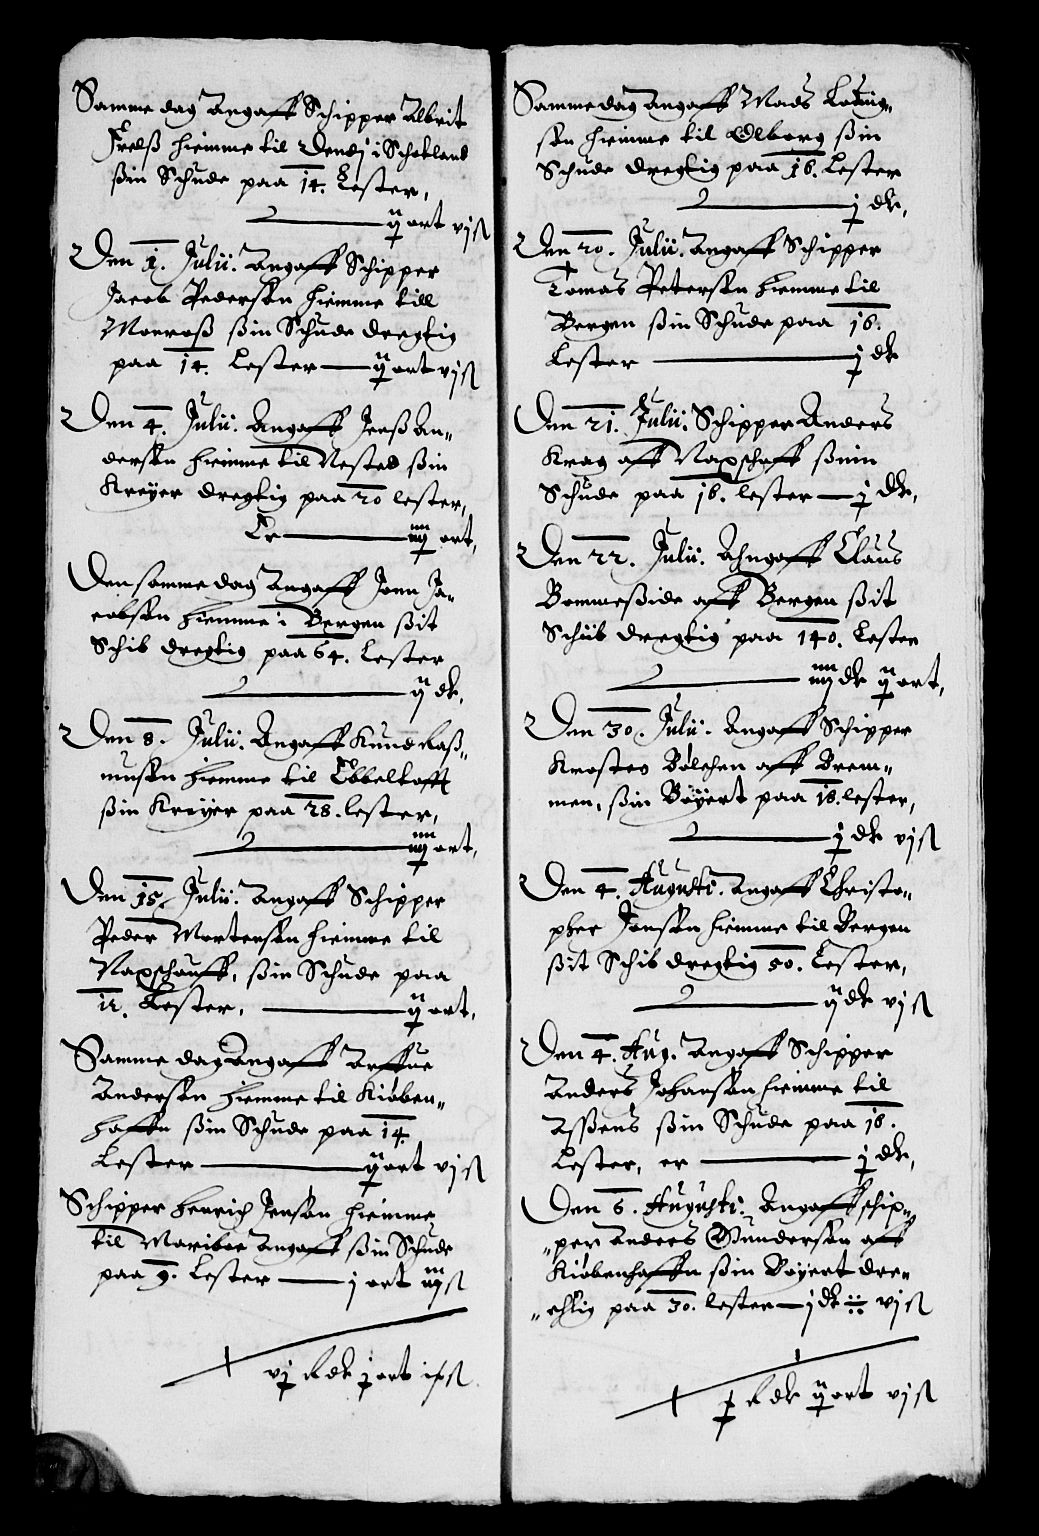 Samme dag Angaff Schipper Albrit
Fredß hiemme til Dendj i Schotland
ßin Schude paa 14. Lester,
ij ort vjß
Den 1. Julii. Angaff Schipper
Jacob Pedersøn hiemme till
Marraß ßin Schude dregtig
paa 14. Lester ij ort vjß
Den 4. Julii. Angaff Jenß An„
dersøn hiemme til Nested ßin
Kreyer dregtig paa 20 lester,
Er iiij ort,
Den samme dag Angaff Jonn Ja„
cobsøn hiemme i Bergen ßit
Schib dregtig paa 64. Lester
ij dlr,
Den 8. Julii. Angaff Knud Raß„
musøn hiemme til Ebbeltofft
ßin Kreyer paa 28. lester,
iiij ort,
Den 15. Julii. Angaff Schipper
Peder Mortensøn hiemme til
Naxschouff, ßin Schude paa
12. Lester, ij ort,
Samme dag Angaff Arffue
Andersøn hiemme til Kiøben„
haffn ßin Schude paa 14.
Lester ij ort vjß
Schipper Henrich Jensøn hiemme
til Mariboe Angaff ßin Schude
paa 9. Lester j ort iiijß
vj R dlr j ort ß
Samme dag Angaff Mads Loduig„
søn hiemme til Olborg ßin
Schude dregtig paa 16. Lester
j dlr,
Den 20. Julii. Angaff Schipper
Tomas Petersøn hiemme til
Bergen ßin Schude paa 16.
Lester j dlr
Den 21. Julii. Schipper Anders
Krag aff Naxschoff ßinn
Schude paa 16. lester j dlr,
Den 22. Julii. Ahngaff Claus
Bommeßide aff Bergen ßit
Schiib dregtig paa 140. Lester
iiij dlr ij ort,
Den 30. Julii. Angaff Schipper
Krosten Bølchen aff Brem„
men, ßin Bøyert paa 18. lester,
j dlr vjß
Den 4. Augusti. Angaff Christo„
pher Jensøn hiemme til Bergen
ßit Schib dregtig 50. Lester,
ij dlr vjß
Den 4. Aug. Angaff Schipper
Anders Johansøn hiemme til
Assens ßin Schude paa 16.
Lester, er j dlr,
Den 6. Augusti. Angaff schip„
„per Anders Gundersøn aff
Kiøbenhaffn ßin Bøyert dre„
„chtig paa 30. lester j dlr vjß
R dlr ij ort vjß